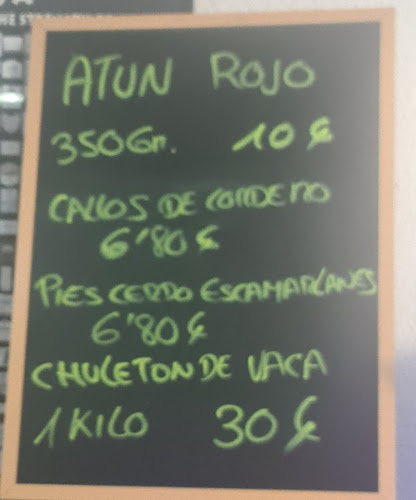 ATUN ROJO
350Gr. 10 €
CALLOS DE CORDERO
6'80 €
PIES CERDO ESCAMARLANES
6'80 €
CHULETON DE VACA
1 KILO 30 €